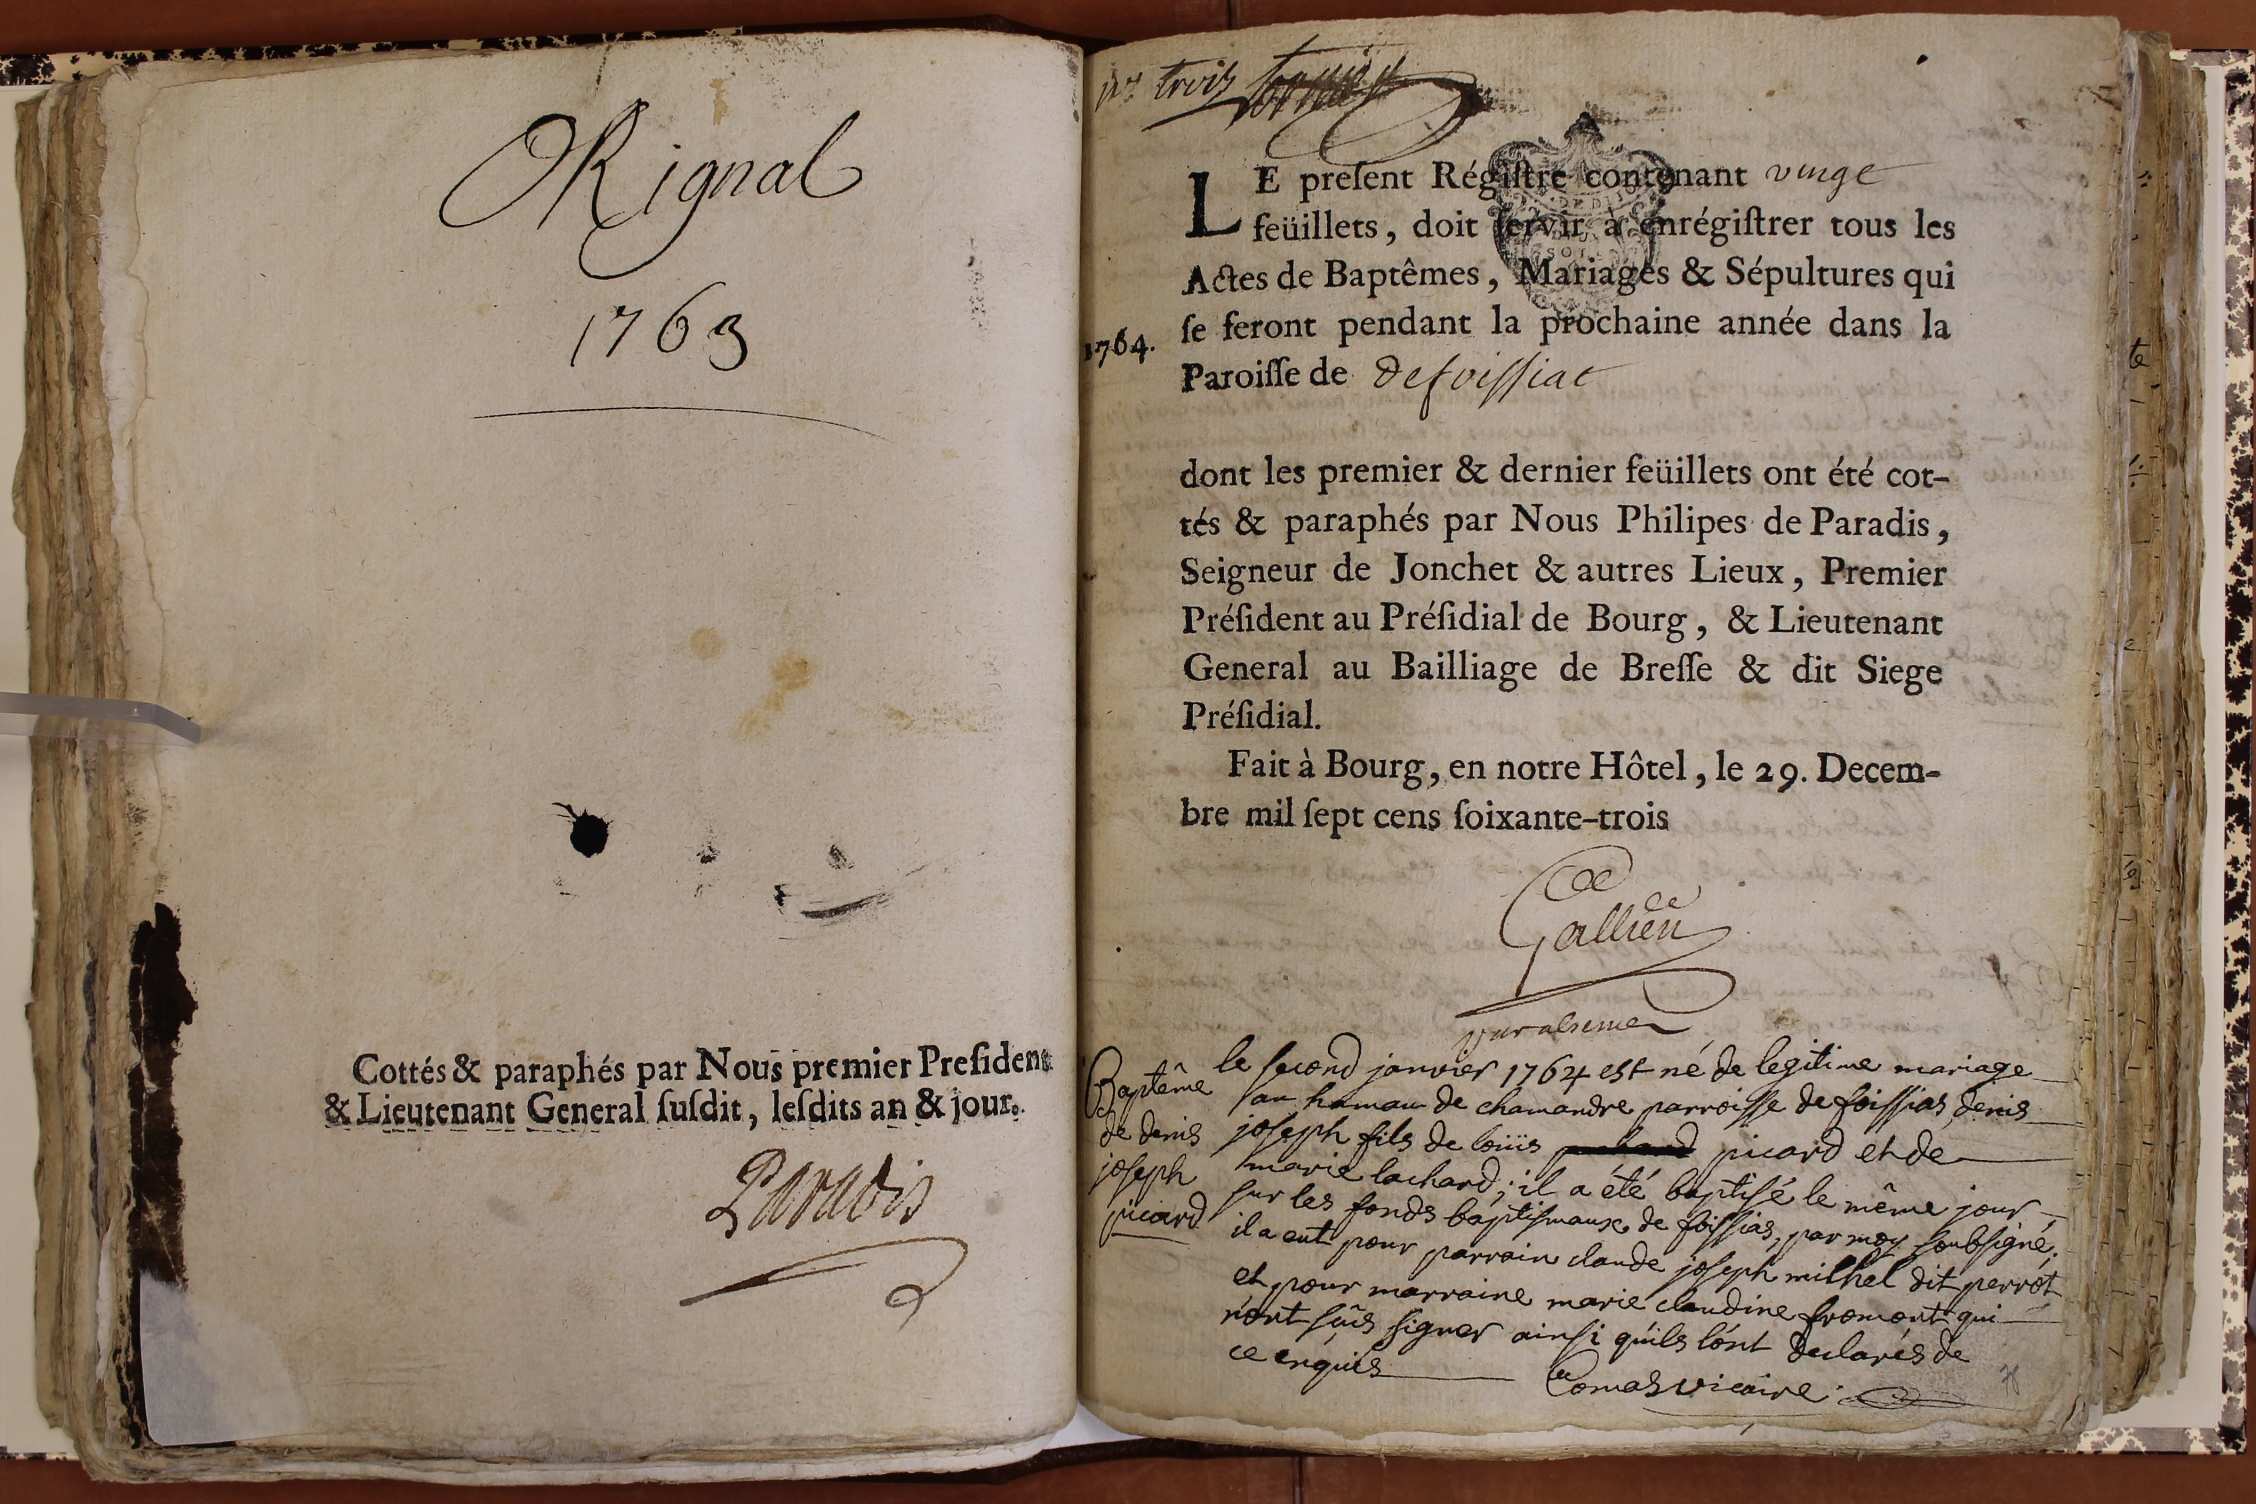 ORignal
1763
Cottés & paraphés par Nous premier President
& Lieutenant General ſuſdit, leſdits an & jour.
Paradis
trois
LE preſent Régiſtre contenant vingt
feüillets, doit ſervir à enrégiſtrer tous les
Actes de Baptêmes, Mariages & Sépultures qui
ſe feront pendant la prochaine année dans la
1764.
Paroiſſe de defoissiat
dont les premier & dernier feüillets ont été cot-
tés & paraphés par Nous Philipes de Paradis,
Seigneur de Jonchet & autres Lieux, Premier
Préſident au Préſidial de Bourg, & Lieutenant
General au Bailliage de Breſſe & dit Siege
Préſidial.
Fait à Bourg, en notre Hôtel, le 29. Decem-
bre mil ſept cens ſoixante-trois
Baptême
de denis
joseph
picard
le second janvier 1764 est né de legitime mariage
au hamau de chamandre parroisse de foissias, denis
joseph fils de loüis picard et de
marie lachard; il a été baptisé le même jour
sur les fonds baptismaux de foissias, par moy soubsigné.
il a eut pour parrain claude joseph milhel dit perrot
et pour marraine marie claudine fromont qui
n'ont sûs signer ainsi qu'ils l'ont declarés de
ce enquis
Comas vicaire.